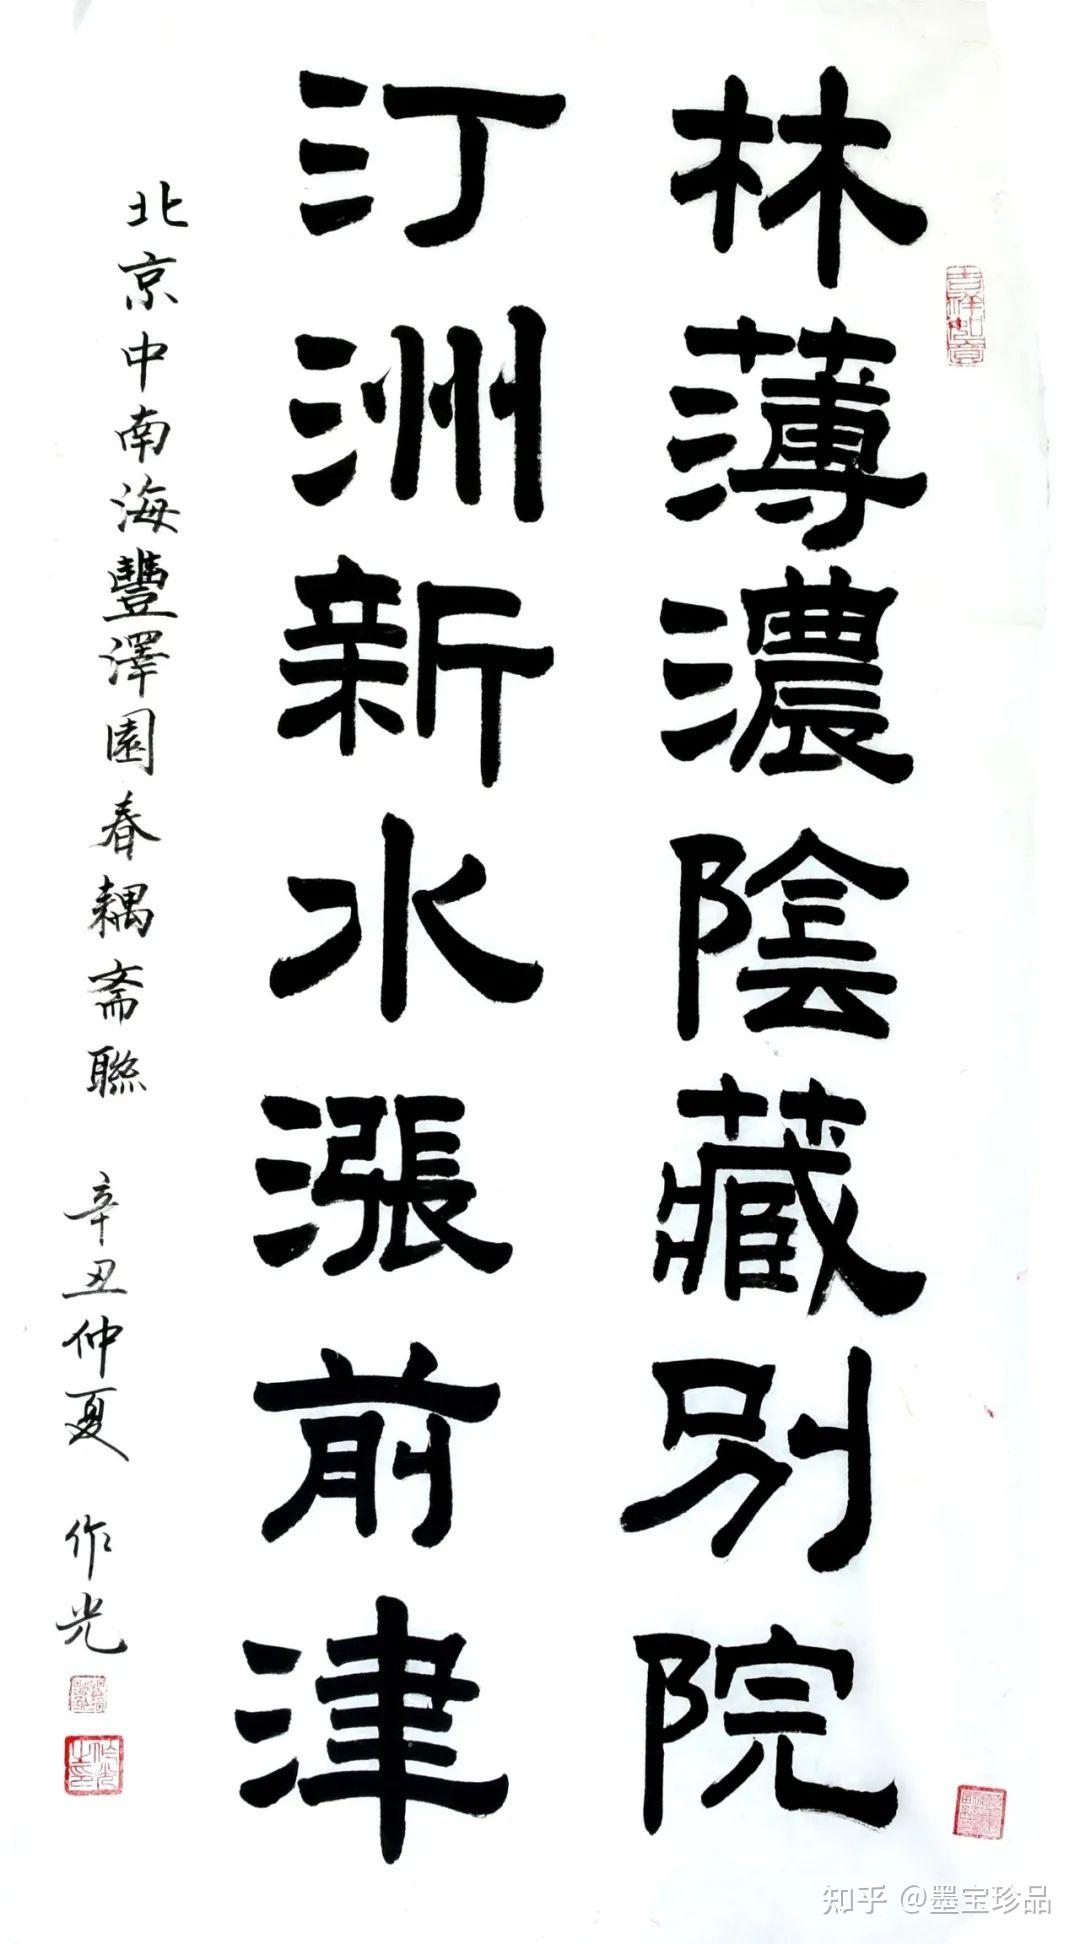 林薄濃陰藏別院
汀洲新水漲前津
北京中南海豐澤園春耦斋聯 辛丑仲夏 作光
知乎 @墨宝珍品